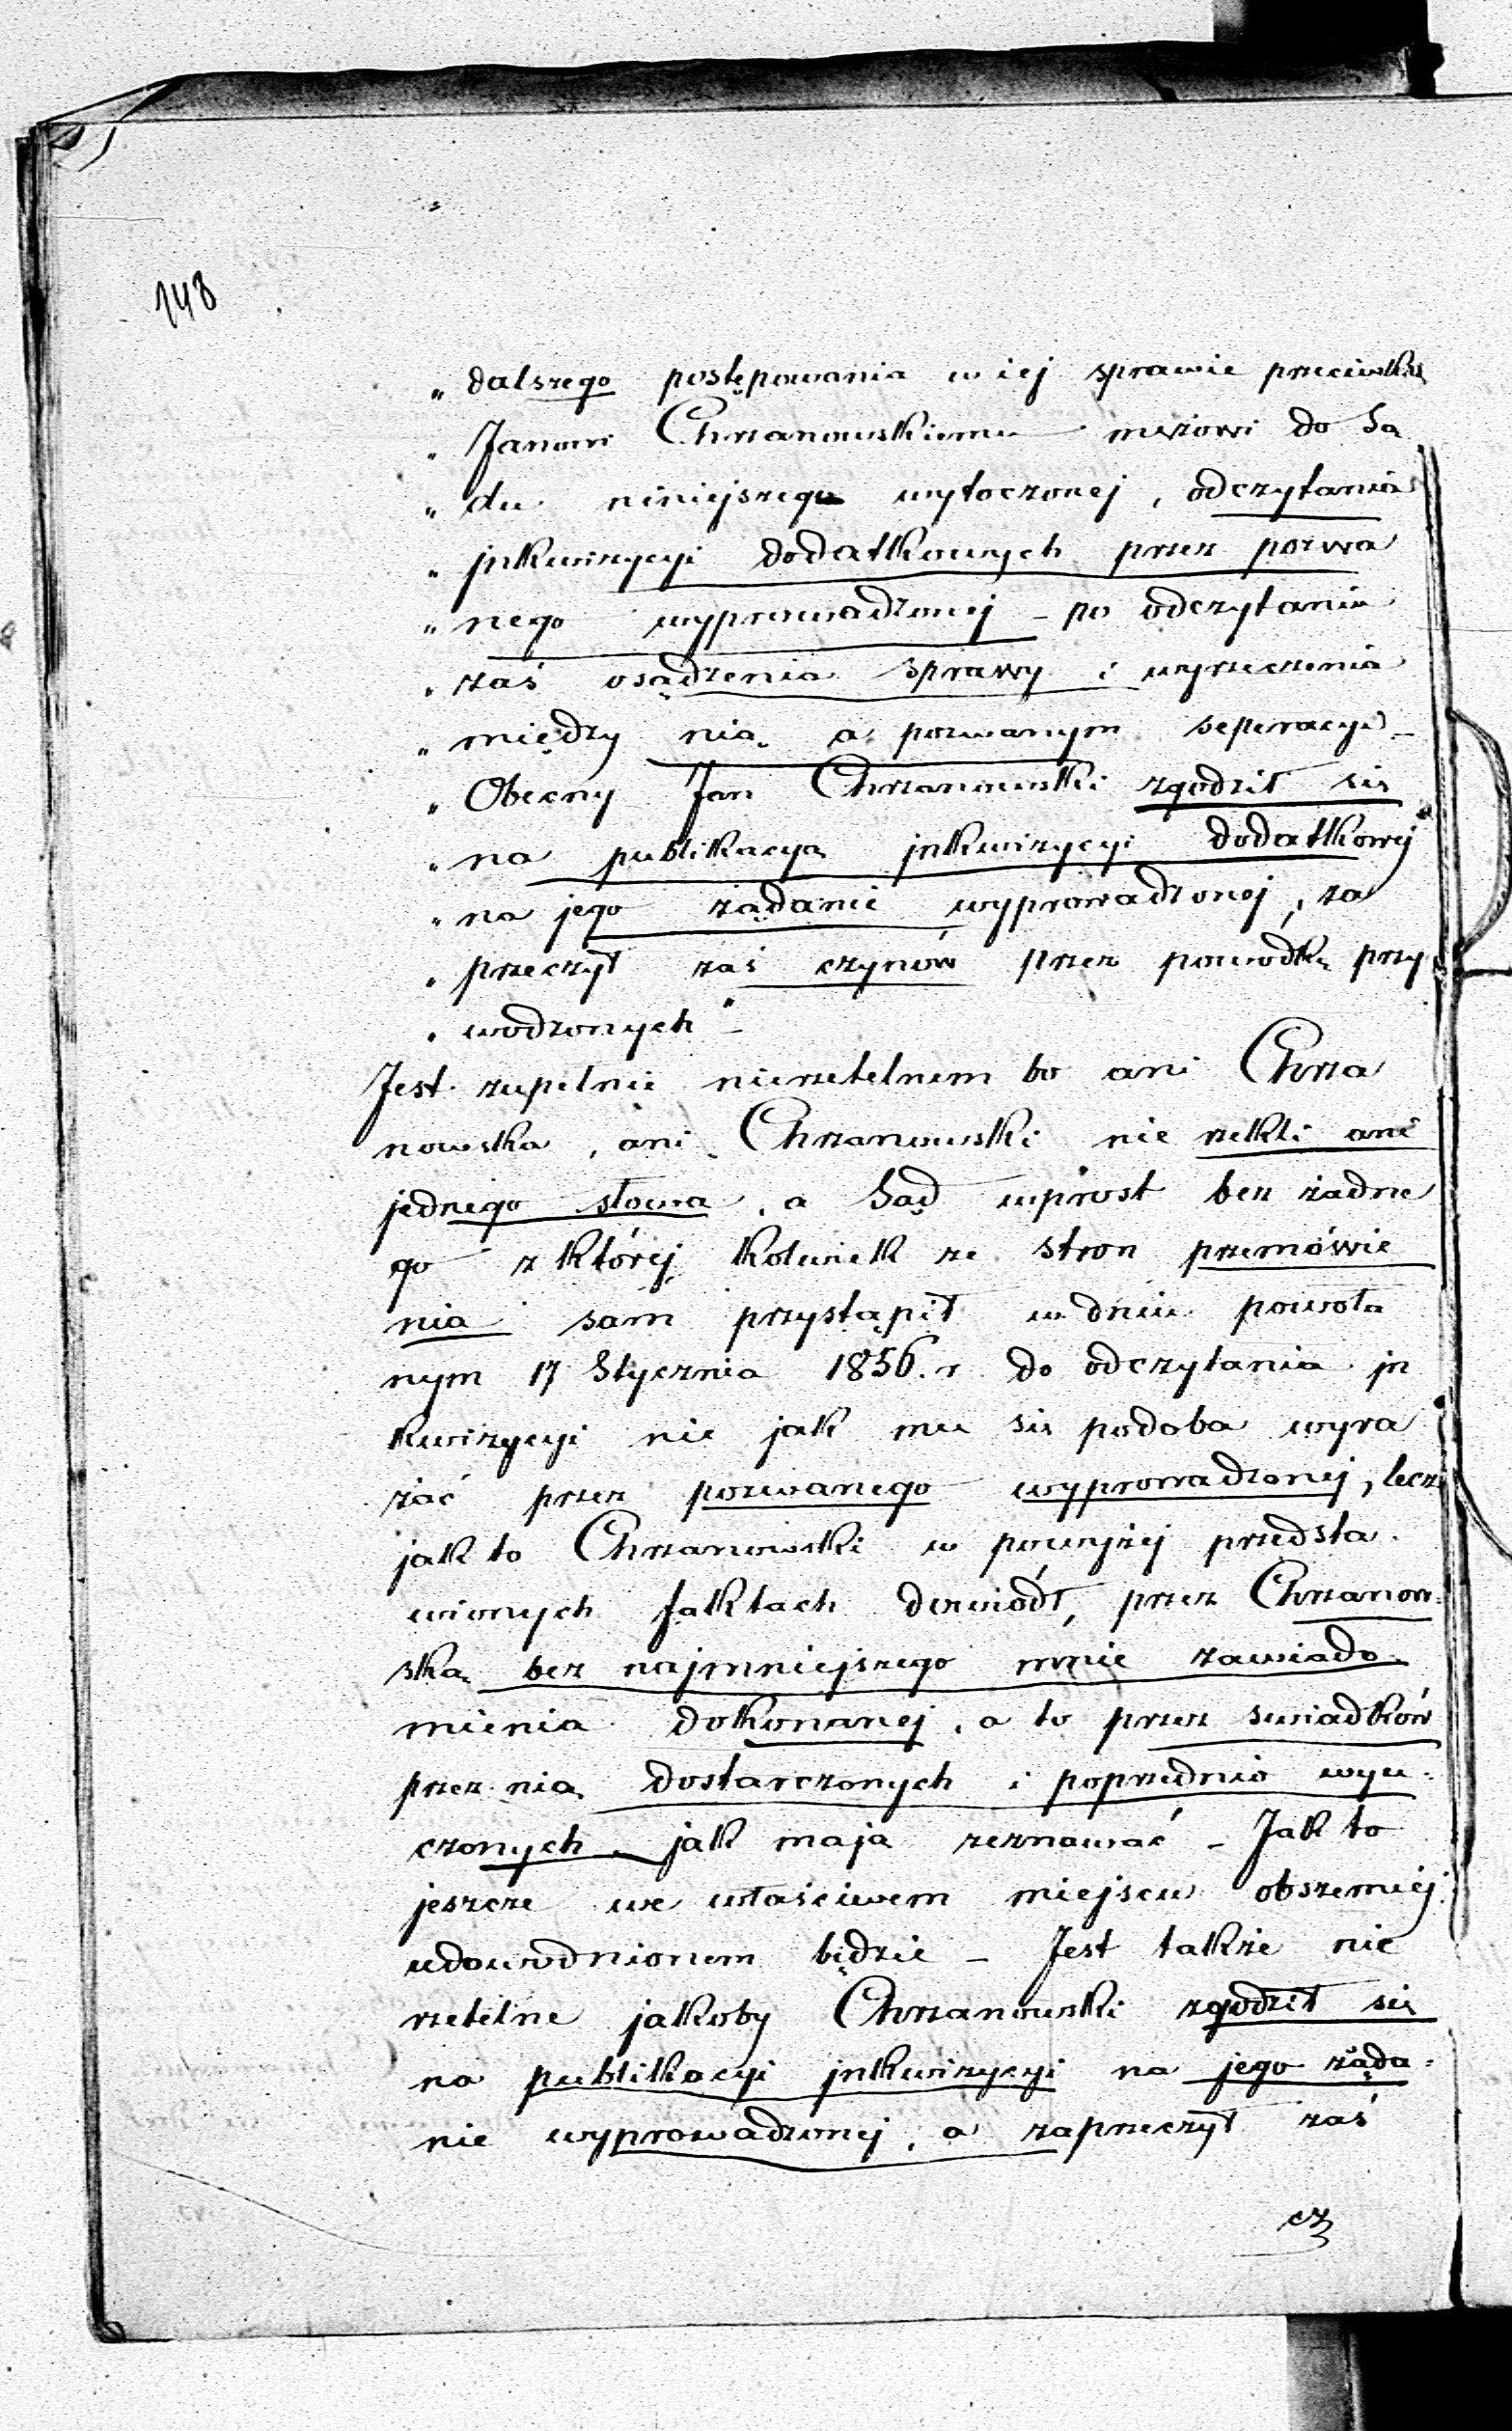 148
„ dalszego postępowania w iej sprawie przeciwko
„ Janowi Chrzanowskiemu mężowi do Są
„ du niniejszego wytoczonej, odczytania
„ jnkwizycyi dodatkowych przez pozwa
„ nego wyprowadzonej – po odczytaniu
„ zaś osądzenia sprawy i wyrzeczenia
„ między nią a pozwanym seperacyi –
„ Obecny Jan Chrzanowski zgodził się
„ na publikacyą jnkwizycyi dodatkowej
„ na jego żądanie wyprowadzonej, za
„ przeczył zaś czynów przez powódkę przy
„ wodzonych" –
Jest zupelnie nierzetelnem bo ani Chrza
nowska, ani Chrzanowski nie rzekli ani
jednego słowa, a Sąd wprost bez żadne
go z której kolwiek ze stron przemówie
nia sam przystąpił w dniu powoła
nym 17 Stycznia 1856. r do odczytania jn
kwizycyi nie jak mu się podoba wyra
żać przez pozwanego wyprowadzonej, lecz
jak to Chrzanowski w powyżej przedsta
wionych faktach dowiódł, przez Chrzanow=
ską bez najmniejszego mnie zawiado
mienia dokonanej, a to przez swiadków
przez nią dostarczonych i poprzednio wyu=
czonych jak maja zeznawać – Jak to
jeszcze we właściwem miejscu obszerniej
udowodnionem będzie – Jest także nie
rzetelne jakoby Chrzanowski zgodził się
na publikacyi jnkwizycyi na jego żąda=
nie wyprowadzonej, a zaprzeczył zaś
cz